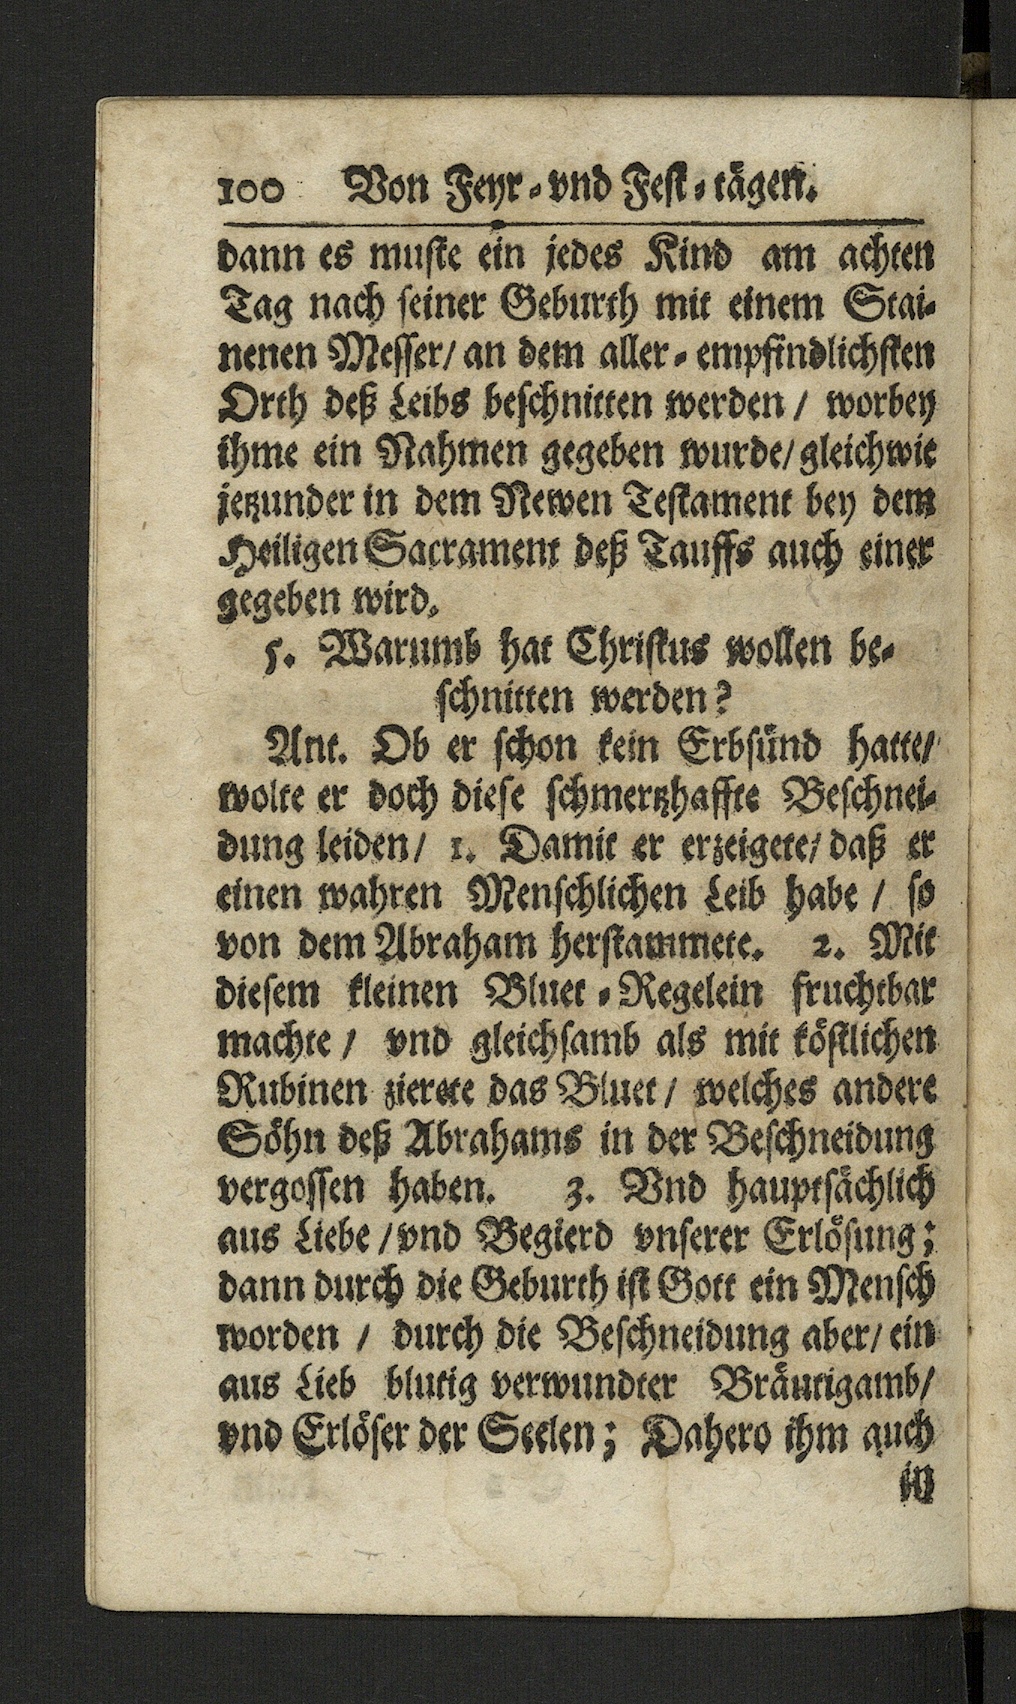 100 Von Feyr-vnd Fest-tägen.
dann es muste ein jedes Kind am achten
Tag nach seiner Geburth mit einem Stai-
nenen Messer/ an dem aller-empfindlichsten
Orth deß Leibs beschnitten werden/ worbey
ihme ein Nahmen gegeben wurde/ gleichwie
jetzunder in dem Newen Testament bey dem
Heiligen Sacrament deß Tauffs auch einer
gegeben wird.
5. Warumb hat Christus wollen be-
schnitten werden?
Ant. Ob er schon kein Erbsünd hatte/
wolte er doch diese schmertzhaffte Beschnei-
dung leiden/ 1. Damit er erzeigete/ daß er
einen wahren Menschlichen Leib habe/ so
von dem Abraham herstammete. 2. Mit
diesem kleinen Bluet-Regelein fruchtbar
machte/ vnd gleichsamb als mit köstlichen
Rubinen zierete das Bluet/ welches andere
Söhn deß Abrahams in der Beschneidung
vergossen haben. 3. Vnd hauptsächlich
aus Liebe/ vnd Begierd vnserer Erlösung;
dann durch die Geburth ist Gott ein Mensch
worden/ durch die Beschneidung aber/ ein
aus Lieb blutig verwundter Bräutigamb/
vnd Erlöser der Seelen; Dahero ihm auch
in